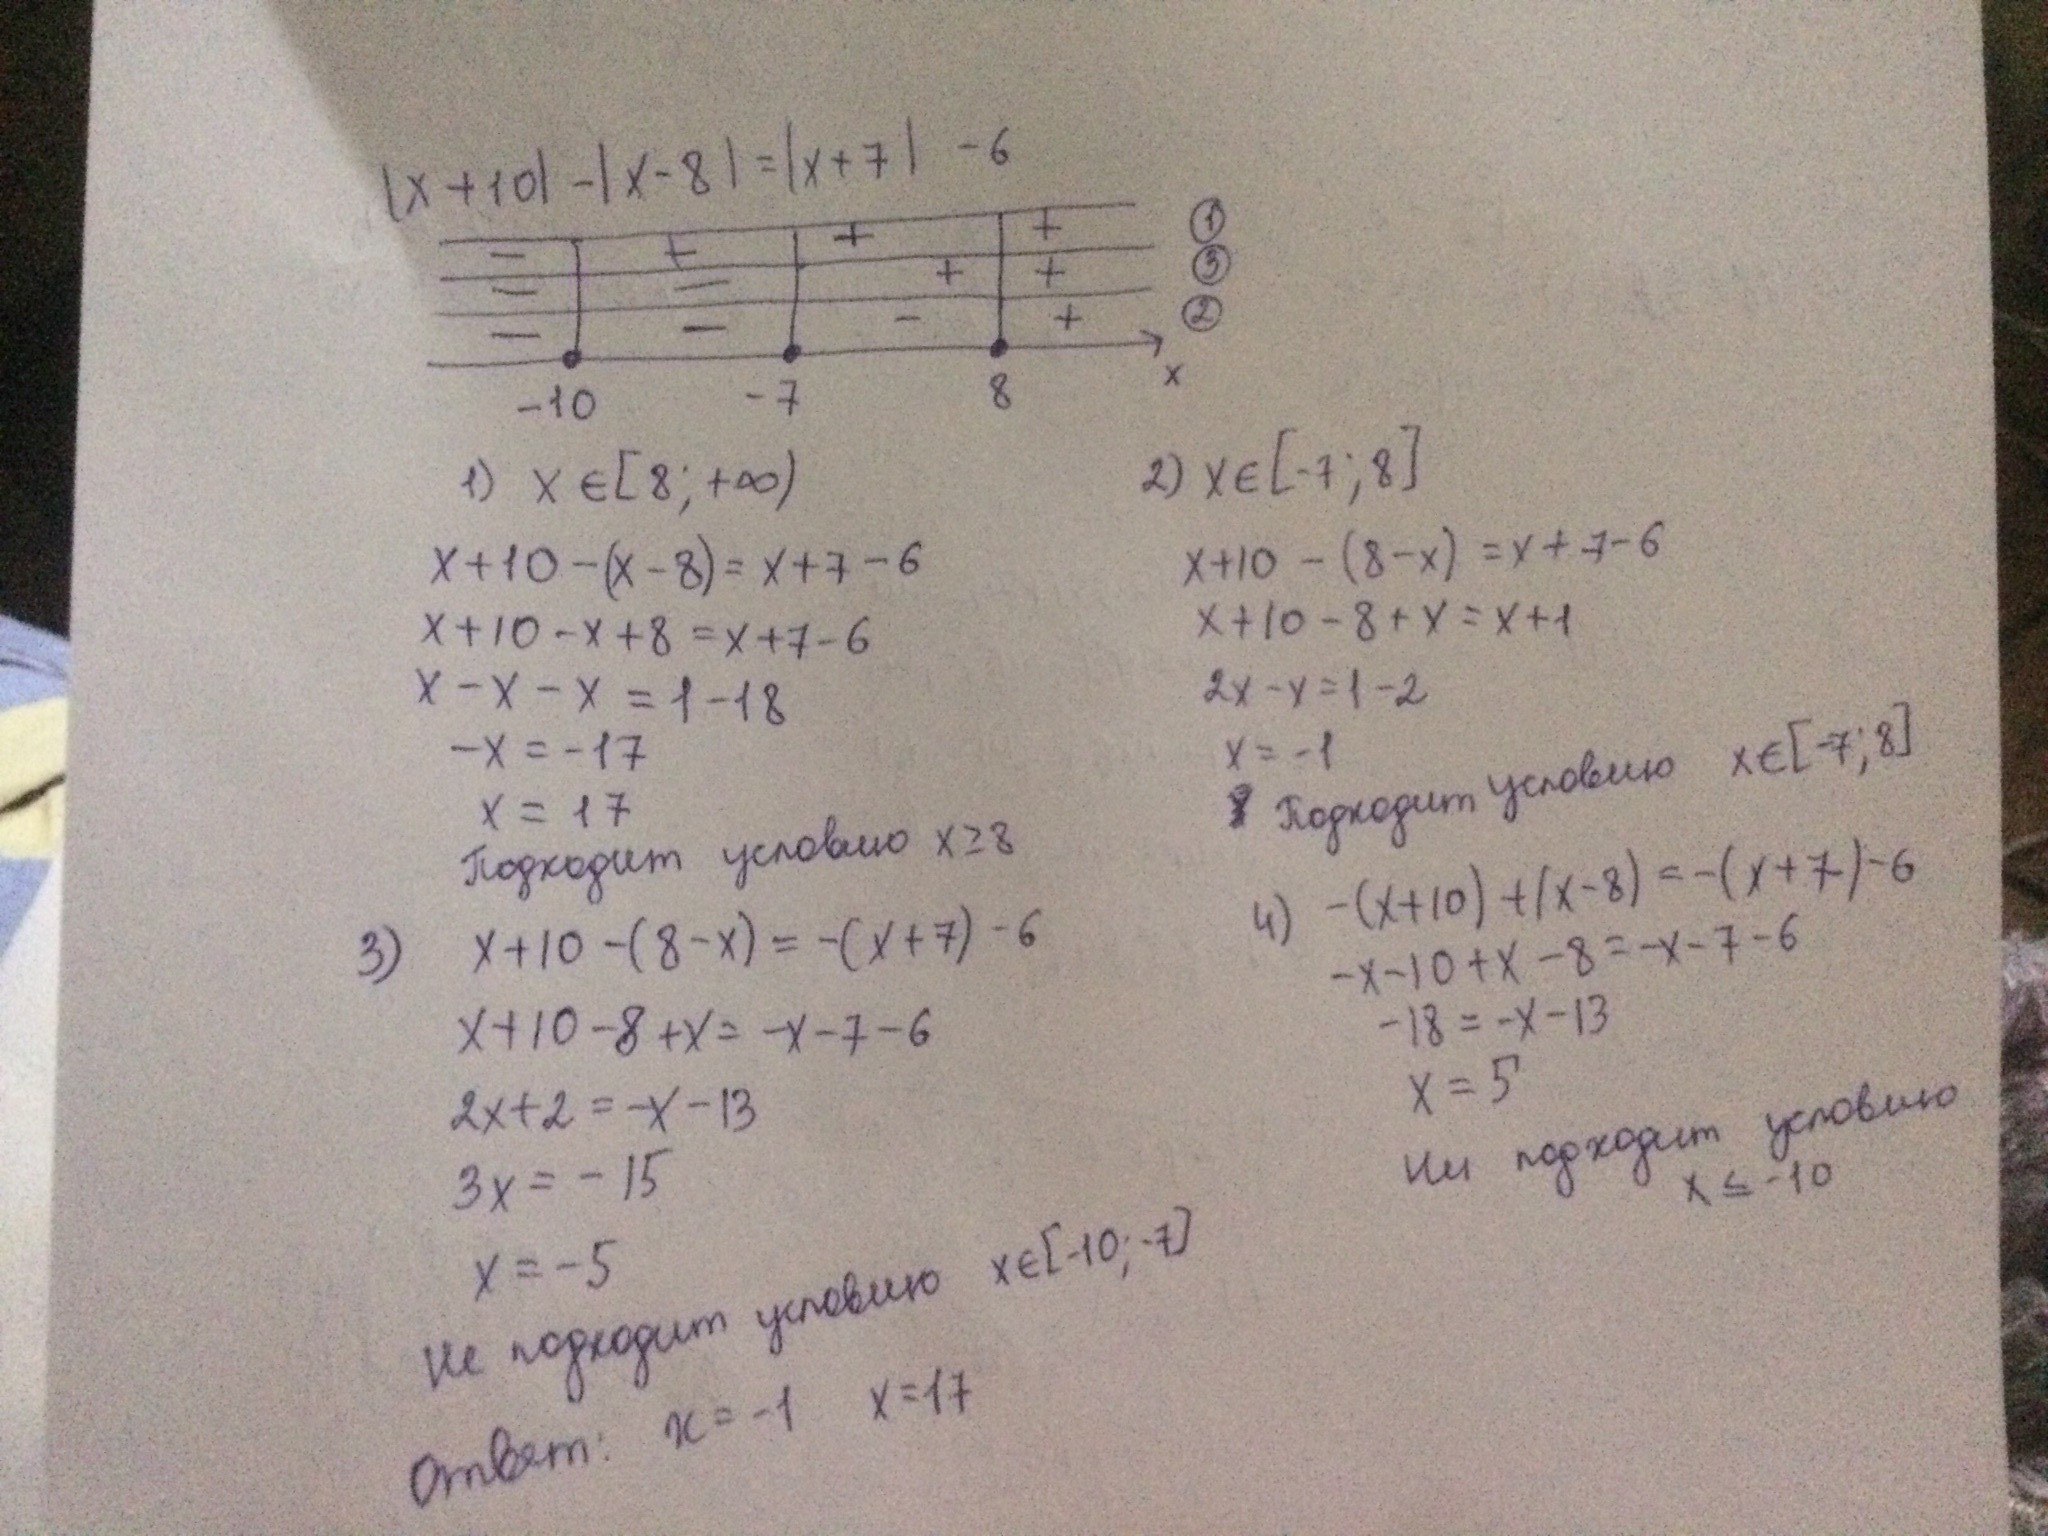 |x+10| -|x-8|=|x+7| -6
- + + + ①
- - + + ③
- - - + ②
-10 -7 8 x
1) x∈[8;+∞)
x+10-(x-8)=x+7-6
x+10-x+8=x+7-6
x-x-x=1-18
-x=-17
x=17
Подходит условию x≥8
2) x∈[-7;8]
x+10-(8-x)=x+7-6
x+10-8+x=x+1
2x-x=1-2
x=-1
Подходит условию x∈[-7;8]
3) x+10-(8-x)=-(x+7)-6
x+10-8+x=-x-7-6
2x+2=-x-13
3x=-15
x=-5
Не подходит условию x∈[-10;-7]
4) -(x+10)+(x-8)=-(x+7)-6
-x-10+x-8=-x-7-6
-18=-x-13
x=5
Не подходит условию
x≤-10
Ответ: x=-1 x=17